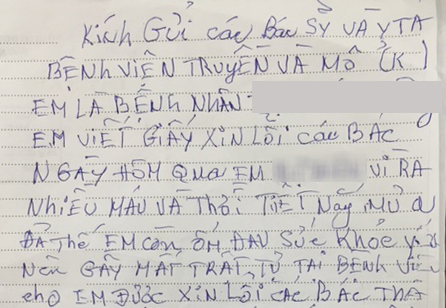 Kính Gửi các Bác SỸ VÀ Y TA
BỆNH VIỆN TRUYỀN VÀ MÔ (K)
EM LÀ BỆNH NHÂN
EM VIẾT GIẤY XIN LỖI CÁC BÁC
NGÀY HÔM QUA EM VÌ RA
NHIỀU MÁU VÀ Thời TIẾT Này MƯ a
ĐÃ Thế EM còn ỐM ĐAU SỨC KHOẺ yếu
NÊN GÂY MẤT TRẬT TỰ TẠI BỆNH Viện
cho EM ĐƯỢC XIN LỖI CÁC BÁC THA